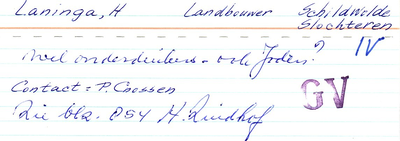 Laninga, H Landbouwer Schildwolde
Slochteren
veel onderduikers - ook Joden? IV
Contact = P. Cnossen GV
Zie blz. 854 H. Rindhof